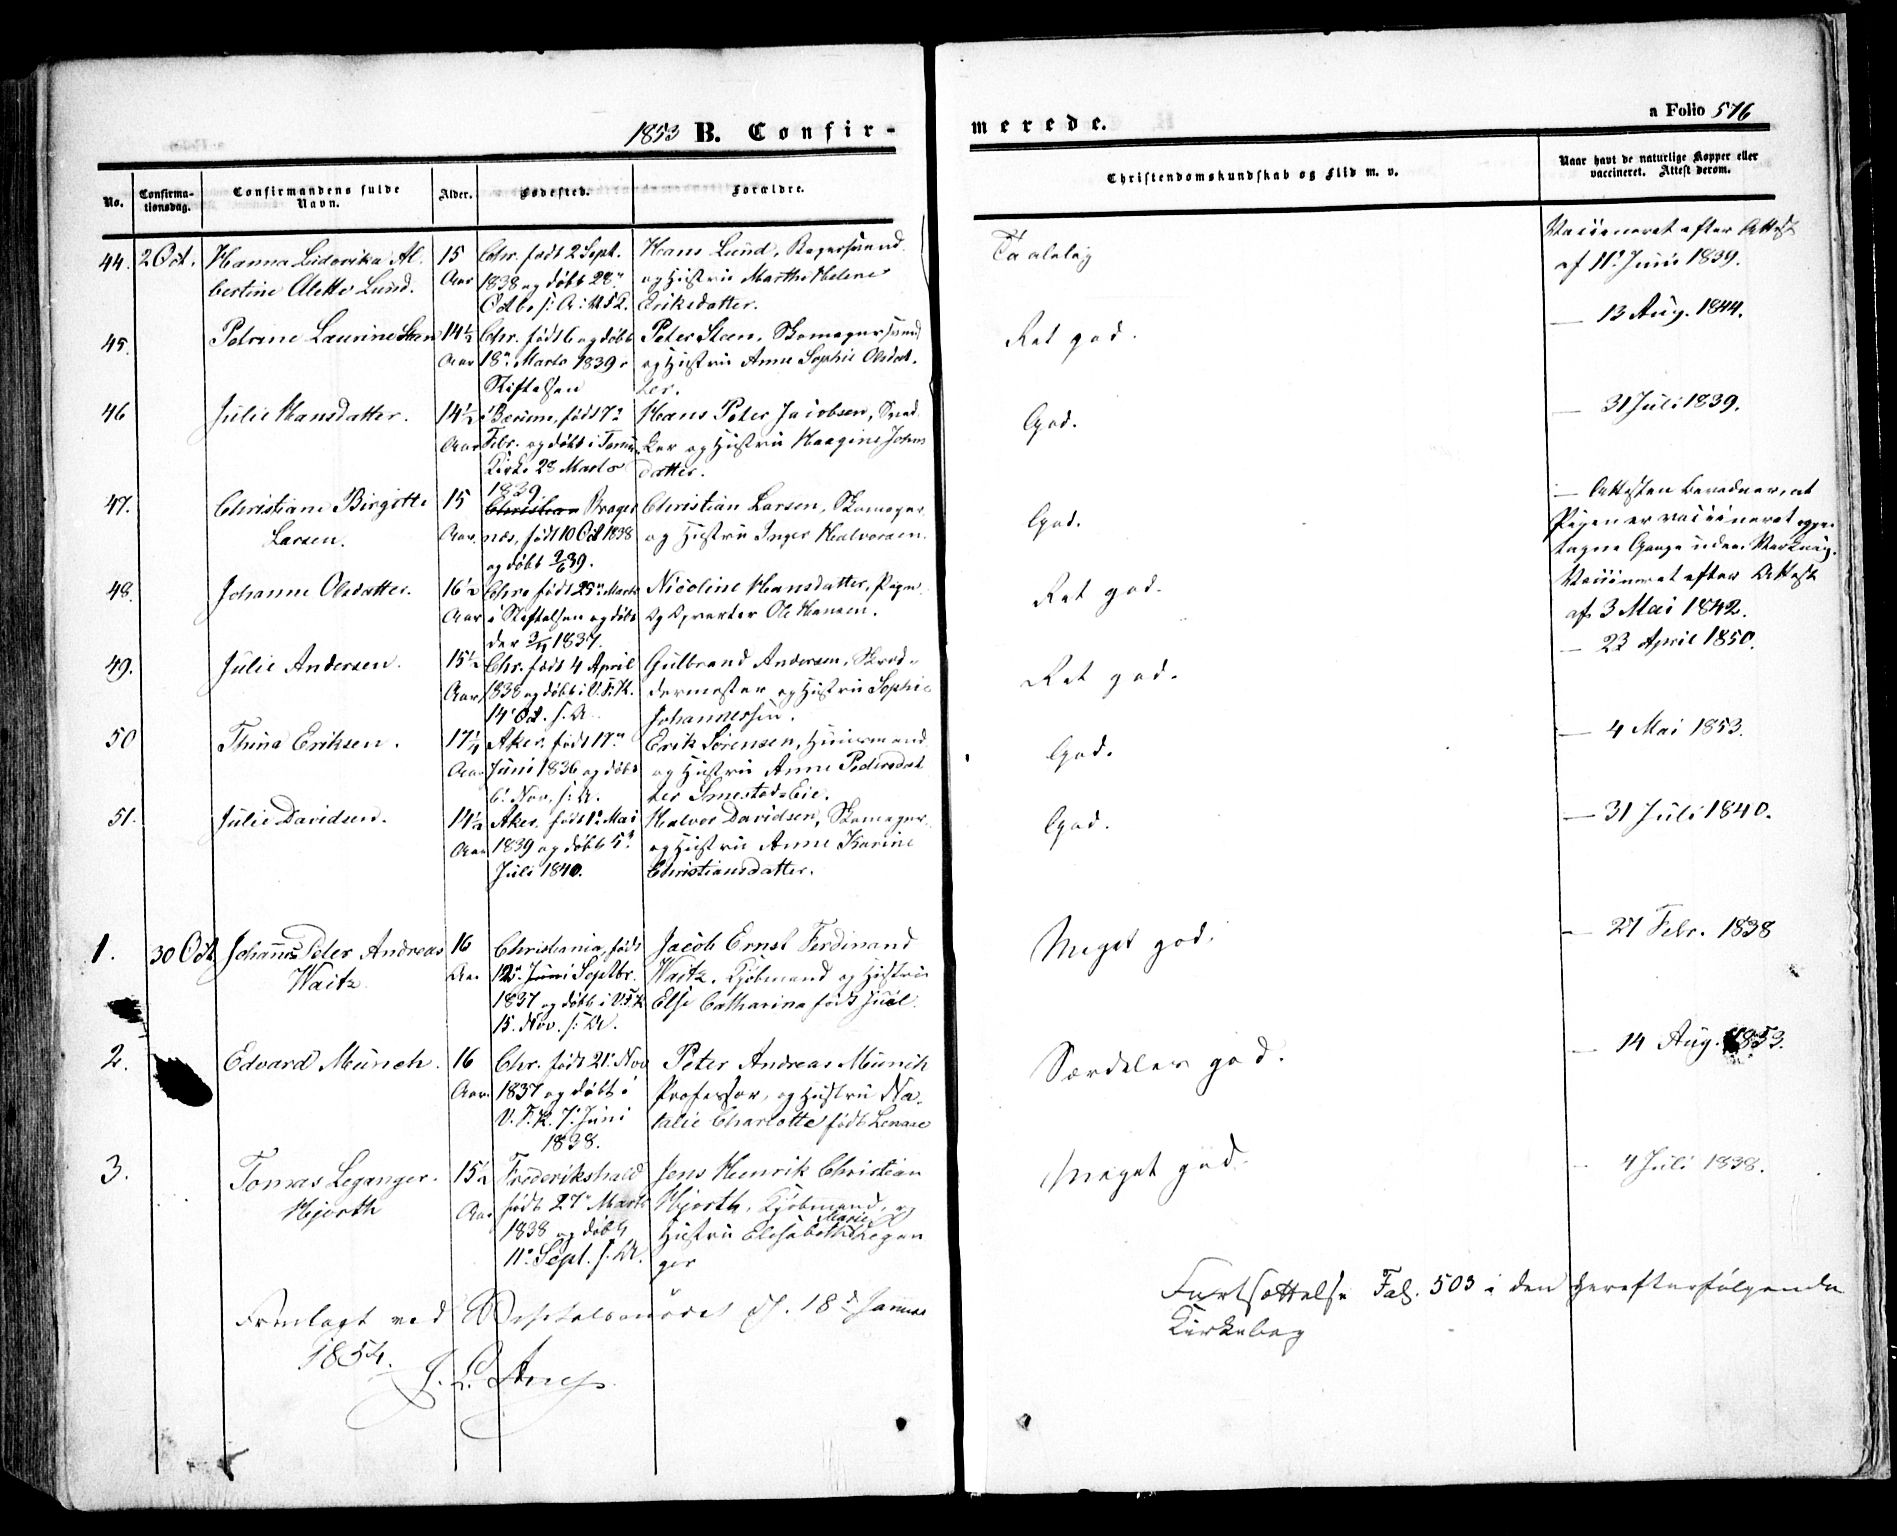 1853 B. Confir-
No.
Confirma-
tionsdag.
Confirmandens fulde
Navn.
Alder.
Fødested.
Forældre.
44. 2 Oct. Hanna Lidovika Al-
bertine Aletté Lund.
15
Aar
Chr. født 2 Sept.
1838 og døbt 28
Hans Lund, Bagersvend
og Hustru Marthe Helene
Eriksdatter.
45. Petrine Laurine Steen
14½
Aar
Chr. født 6 og døbt
18 Marts 1839 i
Stiftelsen
Peter Steen, Skomagersvend
og Hustru Anne Sophie Olsdat-
ter.
46 Julie Hansdatter.
14½
Aar
i Bærum, født 17
Febr. og døbt i
Kirke 28 Marts
1839
Hans Peter Jacobsen, Sned-
ker og Hustru Haagine Johns
datter.
47. Christiane Birgitte
Larsen.
15
Aar.
Christian Brager
næs, født 10 Oct 1838
og døbt 2/6 39.
Christian Larsen, Skomager
og Hustru Inger Halvorsen.
48. Johanne Olsdatter.
16½
Aar
Chra født 25 Marts
i Stiftelsen og døbt
der 3/4 1837.
Nicoline Hansdatter, Pige
og Qvarter Ole Hansen.
49. Julie Andersen.
15½
Aar
Chr. født 4 April
1838 og døbt i V. F. K.
14 Oct. s. A.
Gulbrand Andersen, Skræd-
dermester og Hustru Sophie
Johannessen.
50 Thina Eriksen.
17¼
Aar
Aker. født 17
Juni 1836 og døbt
6 Nov. s. A.
Erik Sørensen, Huusmand
og Hustru Anne Pedersdat
ter Smestads Eie.
51. Julie Davidsen.
14½
Aar
Aker. født 1 Mai
1839 og døbt 5
Juli 1840.
Halvor Davidsen, Skomager
og Hustru Anne Karine
Christiansdatter.
1. 30 Oct Johannes Peter Andreas
Waitz
16
Aar
Christiania, født
12 Juni Septbr.
1837 og døbt i V. F. K
15. Nov. s. A.
Jacob Ernst Ferdinand
Waitz, Kjøbmand og Hustru
Else Catharina født Juel.
2. Edvard Münch.
16
Aar.
Chr. født 21 Nov
1837 og døbt i
V. F. K. 7 Juni
1838.
Peter Andreas Münch
Professor, og Hustru Na-
talie Charlotte født Linaae
3. Tomas Leganger
Hjorth
15½
Aar
Frederikshald
født 27 Marts
1838 og døbt
11 Sept. s. A.
Jens Henrik Christian
Hjorth, Kjøbmand, og
Marie
Hustru Elisabeth Legan
ger
Fremlagt ved d. 18 Januar
1854.
merede.
a Folio 576
Christendomskundskab og Flid m. v.
Naar havt de naturlige Kopper eller
vaccineret. Attest derom.
Taalelig
Vaccineret efter Attest
af 11 Juni 1839.
Ret god.
— 13 Aug. 1844.
God.
— 31 Juli 1839.
God.
— Attesten bevidner, at
Pigen er vaccineret
Gange uden Virkning.
Ret god.
Vaccineret efter Attest
af 3 Mai 1842.
Ret god.
— 23 April 1850.
God.
— 4 Mai 1853.
God.
— 31 Juli 1840.
Meget god.
— 27 Febr. 1838
Særdeles god.
— 14 Aug. 1853.
Meget god.
— 4 Juli 1838.
Fortsættelse Fol. 503 i den herefterfølgende
Kirkebog